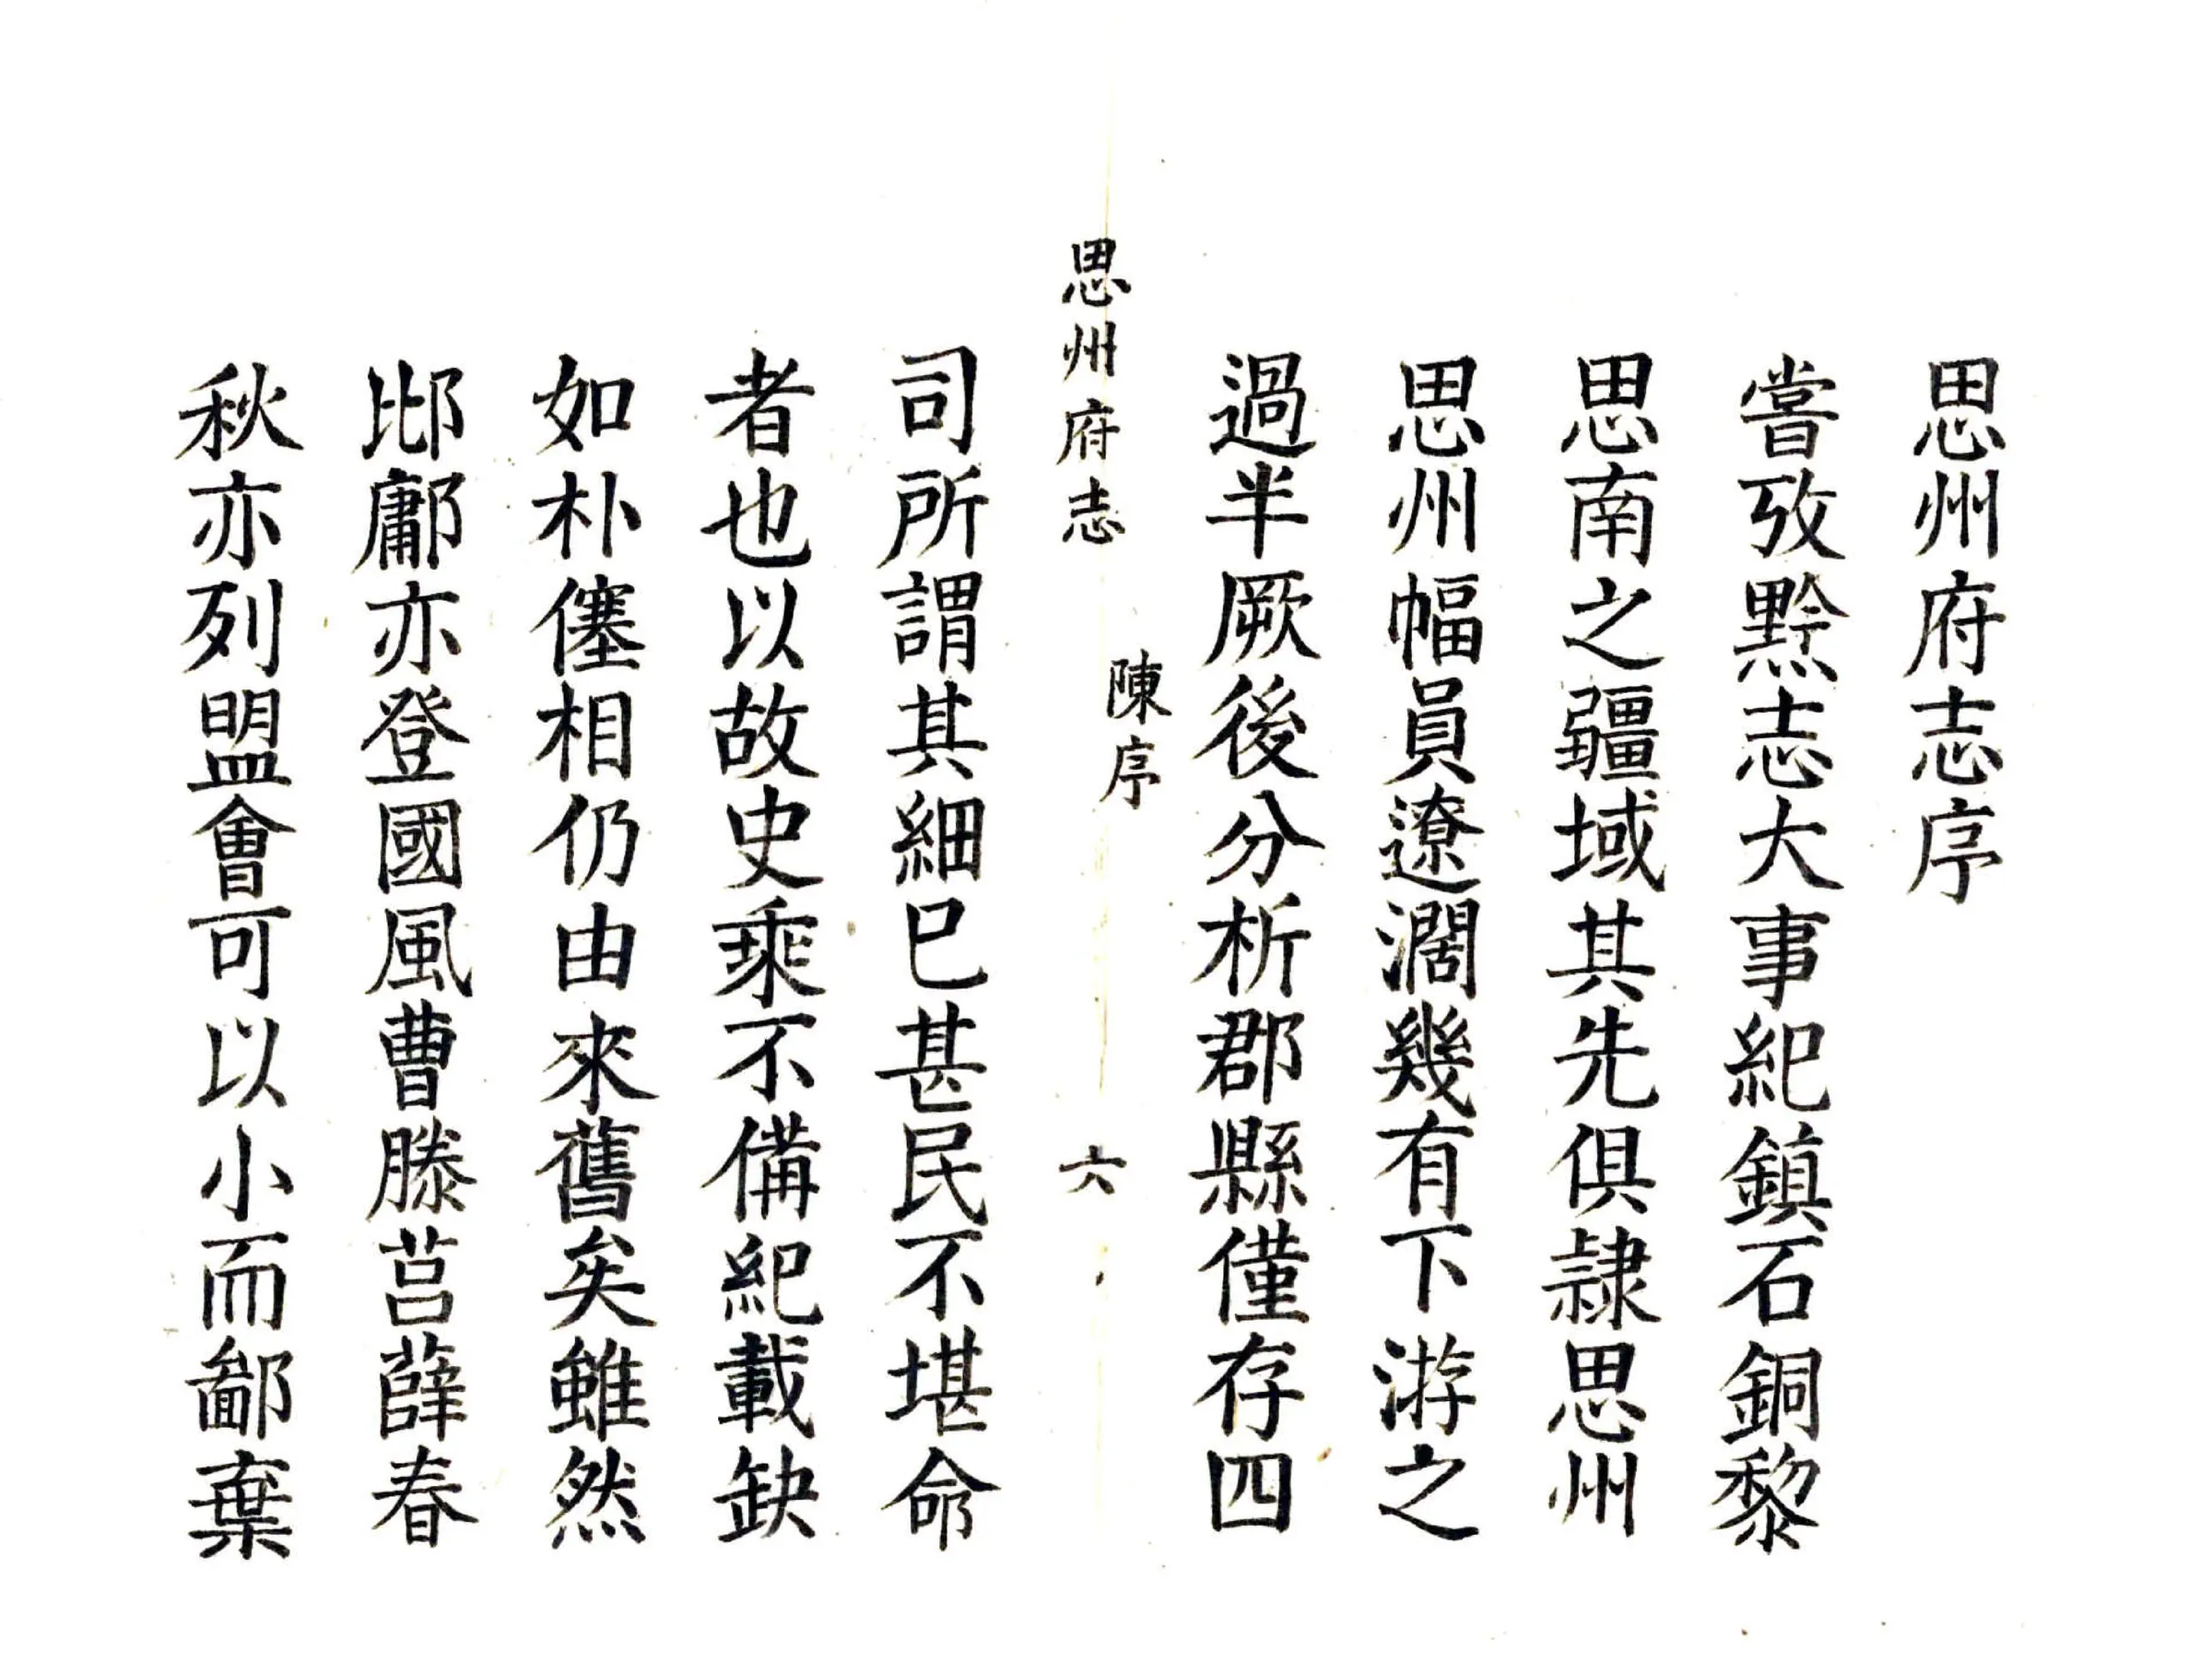 思州府志序
嘗攷黔志大事紀鎮石銅黎
思南之疆域其先俱隷思州
思州幅員遼濶幾有下游之
過半厥後分析郡縣僅存四
思州府志
陳序
六
司所謂其細已甚民不堪命
者也以故史乘不備紀載缺
如朴僿相仍由來舊矣雖然
邶鄘亦登國風曹滕莒薛春
秋亦列盟會可以小而鄙棄